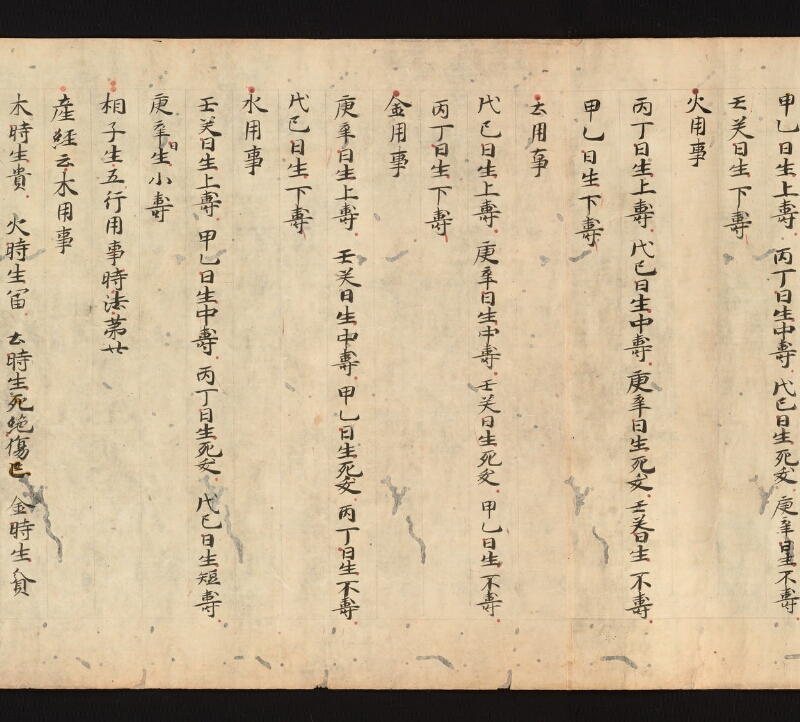 甲乙日生上壽 丙丁日生中壽 戊己日生死亥 庚辛日生不壽
壬癸日生下壽
火用事
丙丁日生上壽 戊己日生中壽 庚辛日生死亥 壬癸日生不壽
甲乙日生下壽
土用事
戊己日生上壽 庚辛日生中壽 壬癸日生死亥 甲乙日生不壽
丙丁日生下壽
金用事
庚辛日生上壽 壬癸日生中壽 甲乙日生死亥 丙丁日生不壽
戊己日生下壽
水用事
壬癸日生上壽 甲乙日生中壽 丙丁日生死亥 戊己日生短壽
庚辛日生小壽
相子生五行用事時法第廿
産経云木用事
木時生貴 火時生富 土時生死絶傷亡 金時生貧